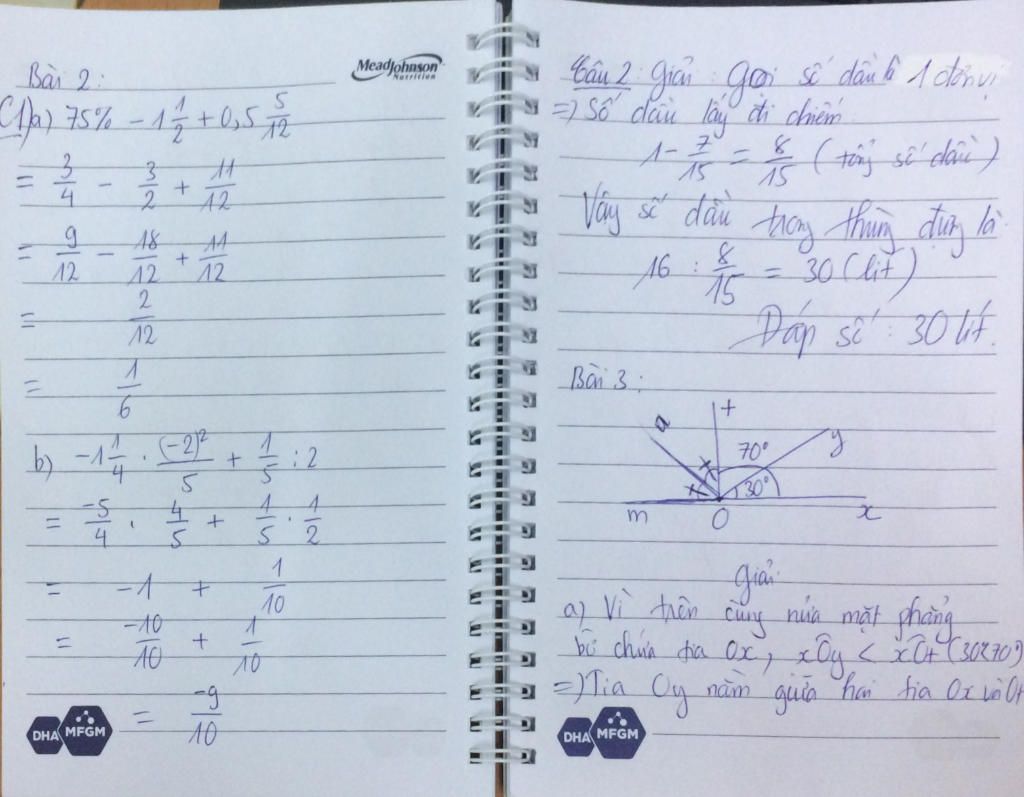 MeadJohnson
Nutrition
Bài 2:
C1) a) 75% - 1 1/2 + 0,5 5/12
= 3/4 - 3/2 + 11/12
= 9/12 - 18/12 + 11/12
= 2/12
= 1/6
b) -1 1/4 . (-2)²/5 + 1/5 : 2
= -5/4 . 4/5 + 1/5 . 1/2
= -1 + 1/10
= -10/10 + 1/10
= -9/10
DHA MFGM
Câu 2: Giải: Gọi số dầu là 1 đơn vị
=> Số dầu lấy đi chiếm
1 - 7/15 = 8/15 (tổng số dầu)
Vậy số dầu trong thùng đựng là
16 : 8/15 = 30 (lít)
Đáp số: 30 lít.
Bài 3:
a t y
70°
30°
m O x
Giải:
a) Vì trên cùng nửa mặt phẳng
bờ chứa tia Ox, xÔy < xÔt (30<70°)
=> Tia Oy nằm giữa hai tia Ox và Ot
DHA MFGM